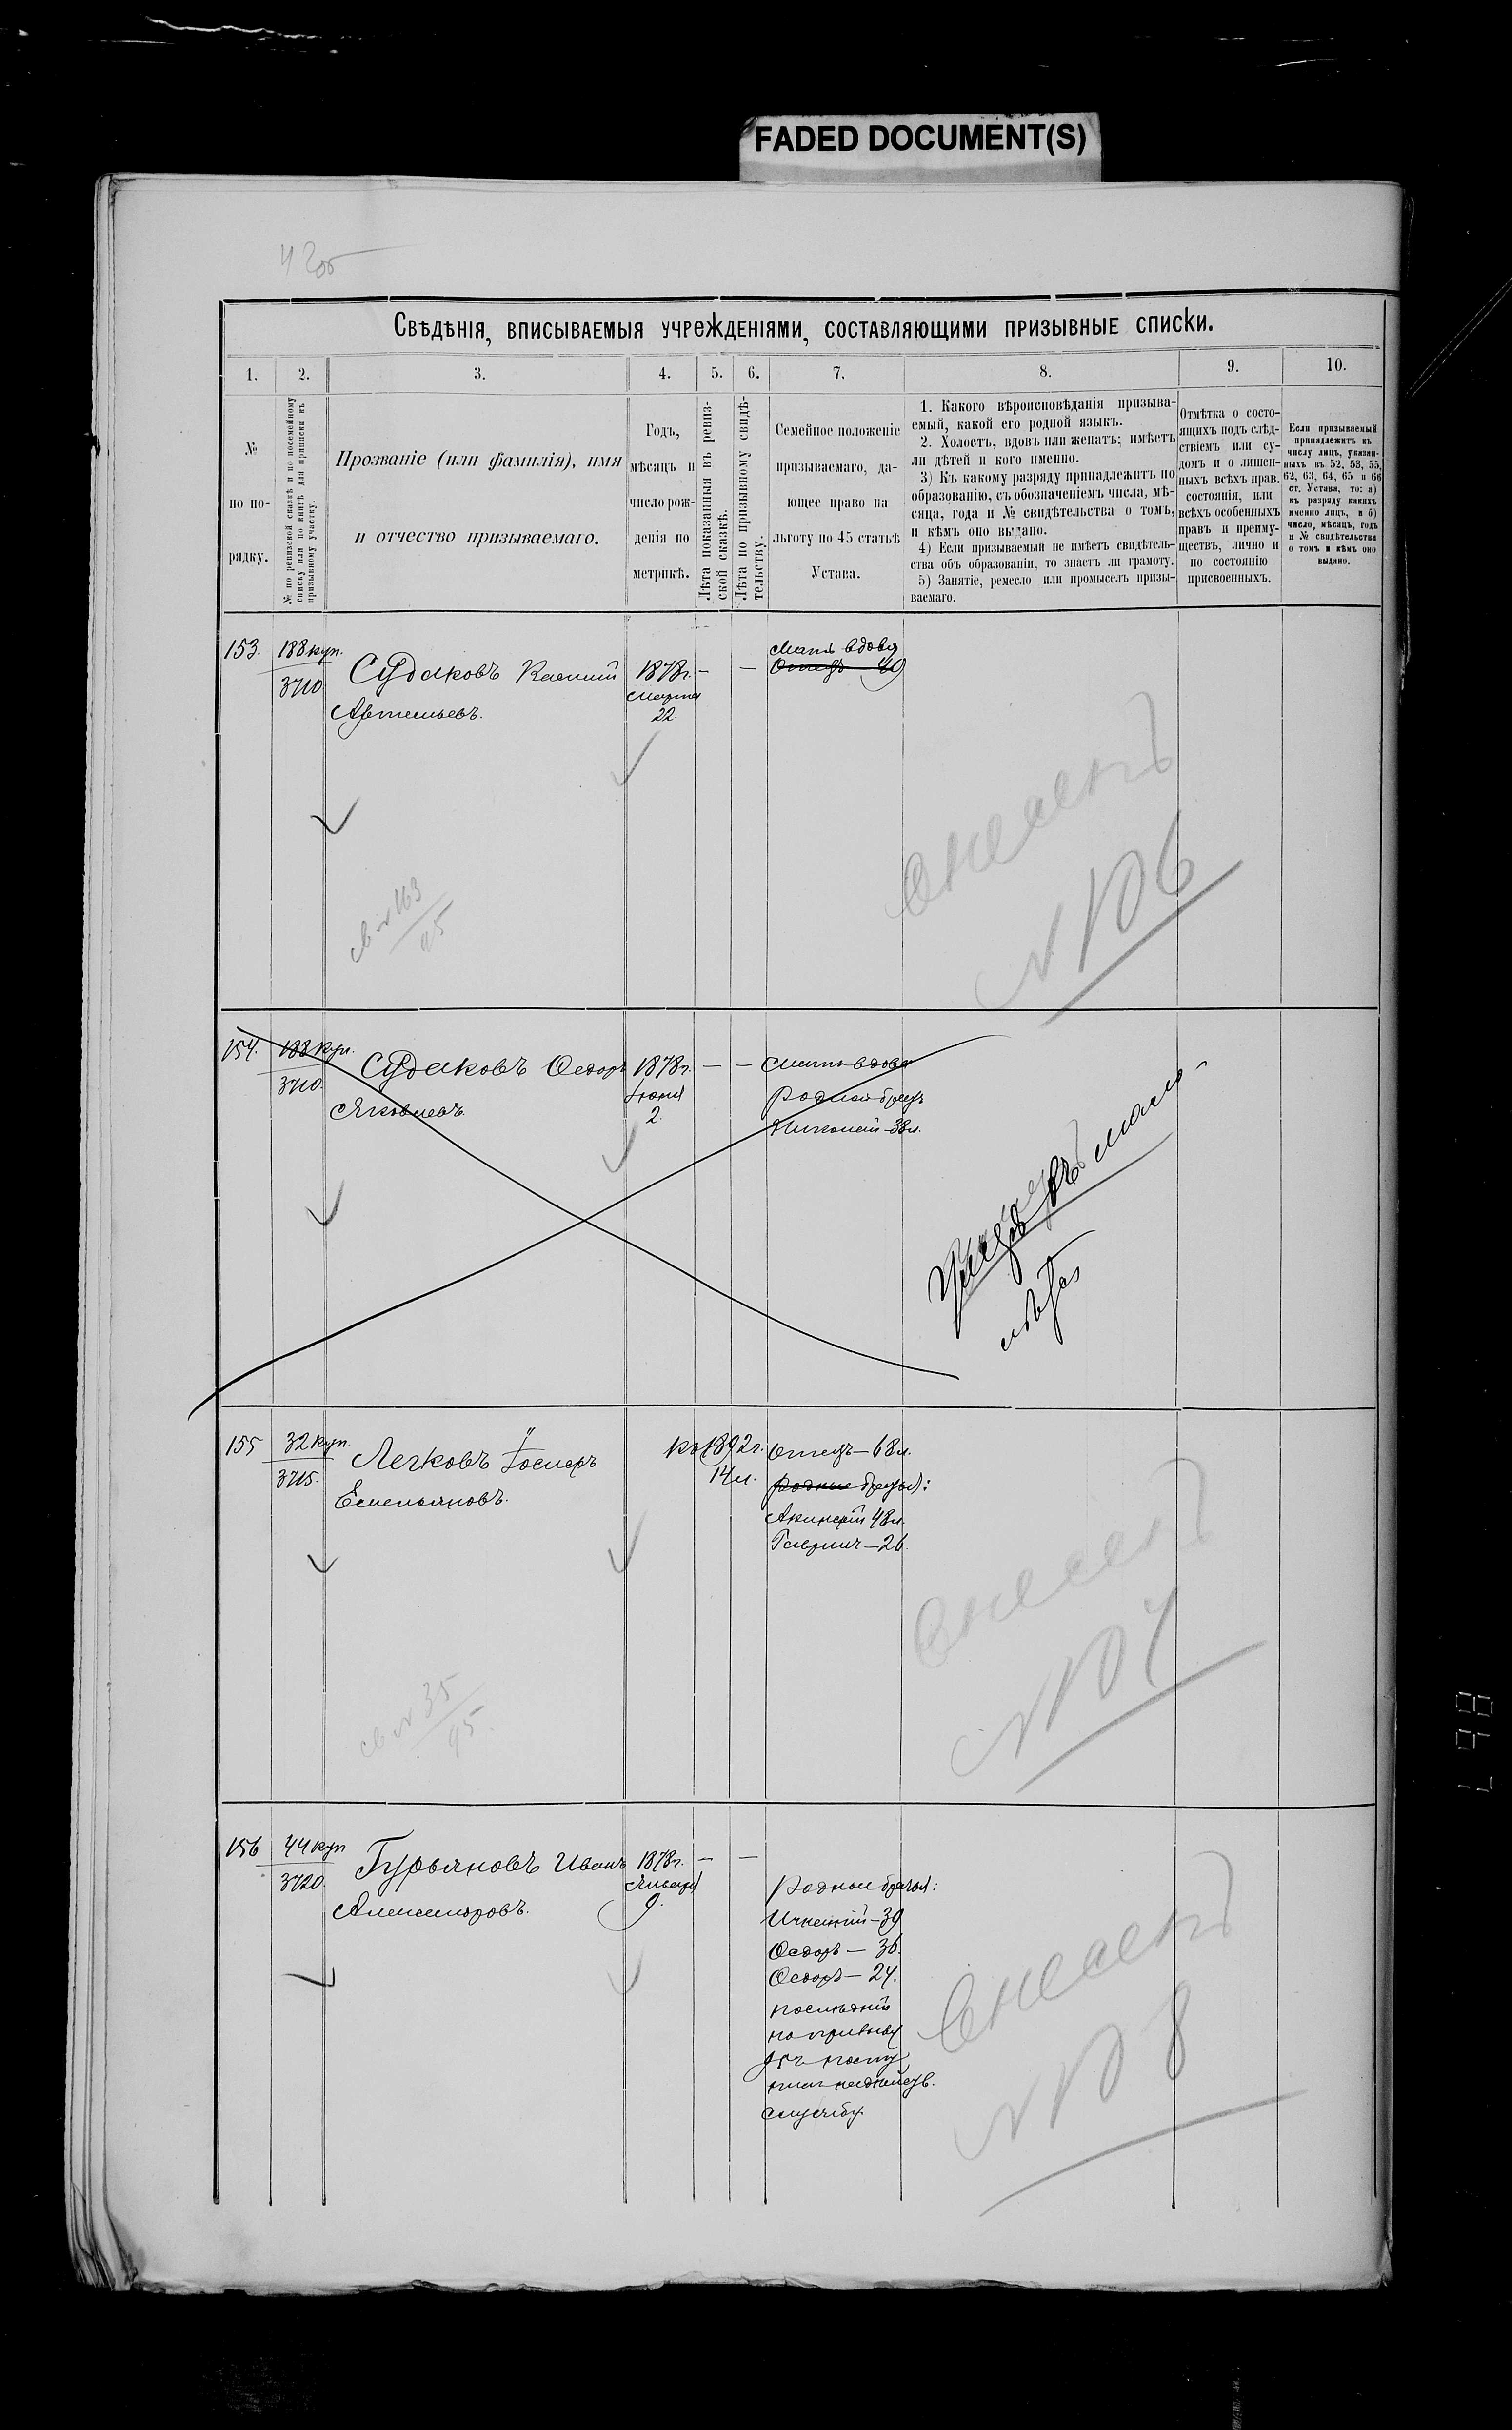 FADED DOCUMENT(S)
Свѣдѣнія, вписываемыя учрежденіями, составляющими призывные списки.
1. 2. 3. 4. 5. 6. 7. 8. 9. 10.
№
по по-
рядку.
№ по ревизской сказкѣ и по посемейному
списку или по книгѣ для приписки къ
призывному участку.
Прозваніе (или фамилія), имя
и отчество призываемаго.
Годъ,
мѣсяцъ и
число рож-
денія по
метрикѣ.
Лѣта показанныя въ ревиз-
ской сказкѣ.
Лѣта по призывному свидѣ-
тельству.
Семейное положеніе
призываемаго, да-
ющее право на
льготу по 45 статьѣ
Устава.
1. Какого вѣроисповѣданія призыва-
емый, какой его родной языкъ.
2. Холостъ, вдовъ или женатъ; имѣетъ
ли дѣтей и кого именно.
3) Къ какому разряду принадлежитъ по
образованію, съ обозначеніемъ числа, мѣ-
сяца, года и № свидѣтельства о томъ,
и кѣмъ оно выдано.
4) Если призываемый не имѣетъ свидѣтель-
ства объ образованіи, то знаетъ ли грамоту.
5) Занятіе, ремесло или промыселъ призы-
ваемаго.
Отмѣтка о состо-
ящихъ подъ слѣд-
ствіемъ или су-
домъ и о лишен-
ныхъ всѣхъ прав.
состоянія, или
всѣхъ особенныхъ
правъ и преиму-
ществъ, лично и
по состоянію
присвоенныхъ.
Если призываемый
принадлежитъ къ
числу лицъ, указан-
ныхъ въ 52, 53, 55,
62, 63, 64, 65 и 66
ст. Устава, то: а)
къ разряду какихъ
именно лицъ, и б)
число, мѣсяцъ, годъ
и № свидѣтельства
о томъ и кѣмъ оно
выдано.
153. 188 куп.
3710.
Судаковъ
Артемьевъ.
1878г.
Марта
22.
— —
Мать вдова
Отецъ 49
св № 163
95
внесенъ
№ 106
154. 188 куп.
3710.
Судаковъ Ѳедоръ
Яковлевъ
1878г.
Іюня
2.
— —
Мать вдова
Родной братъ
Николай—38л.
155 32 куп.
3715.
Легковъ Іосифъ
Емельяновъ.
къ 1892г.
14л.
Отецъ—68л.
родные братья:
48л.
Гаврилъ—26.
св № 35
95
внесенъ
№ 107
156 44 куп
3720.
Гурьяновъ Иванъ
Александровъ.
1878г.
Января
9.
— —
Родные братья:
Игнатій—39
Ѳедоръ—36.
Ѳедоръ—24.
послѣдній
службу
внесенъ
№ 108